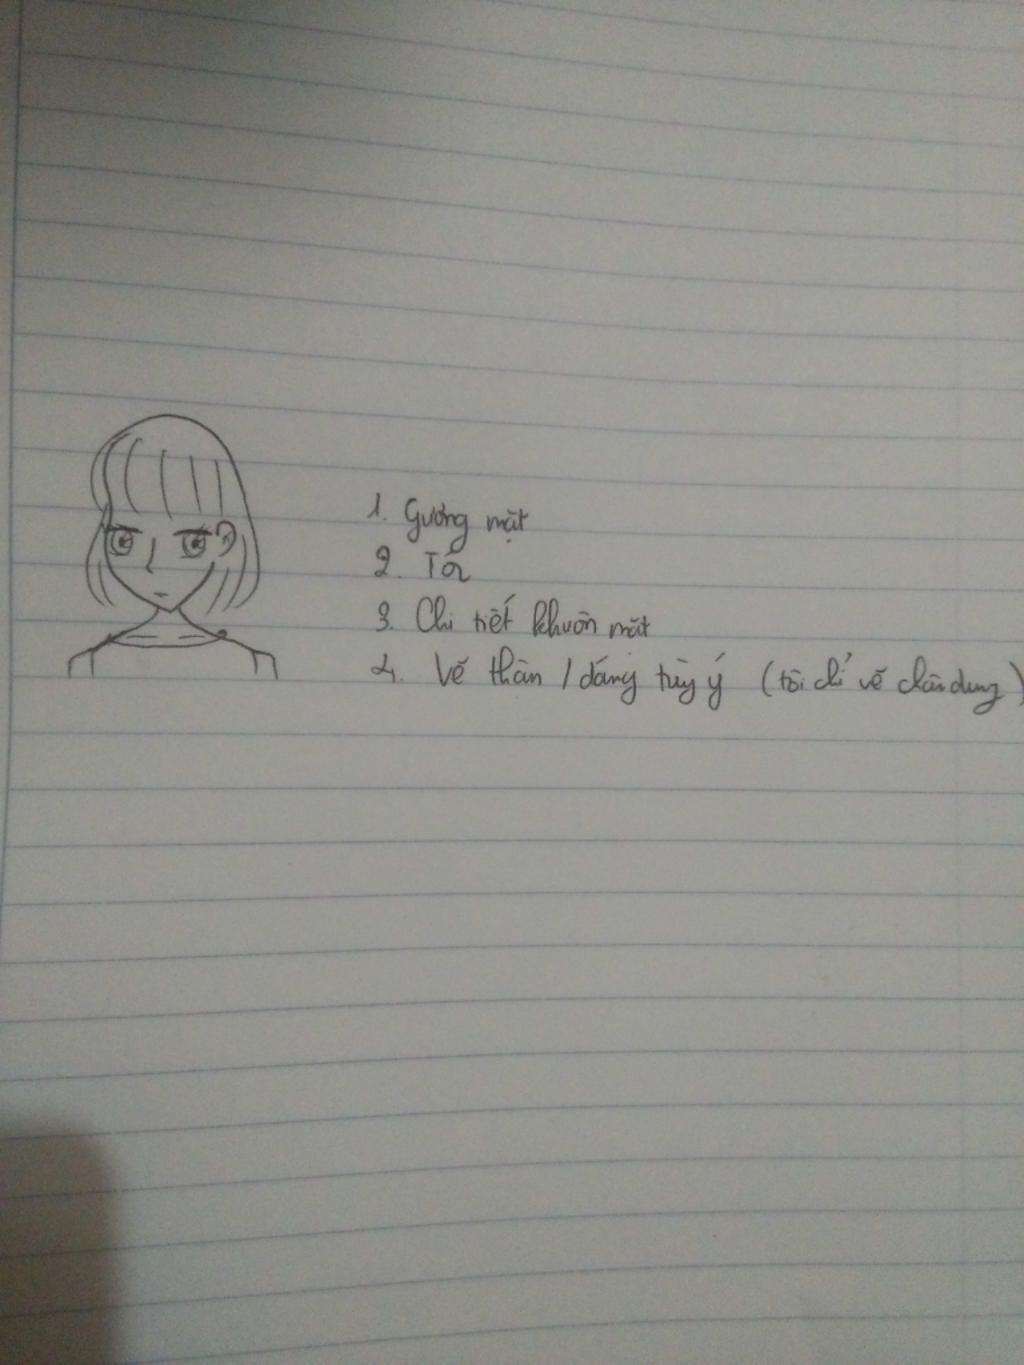 1. Gương mặt
2. Tóc
3. Chi tiết khuôn mặt
4. Vẽ thân / dáng tùy ý (tôi chỉ vẽ chân dung)